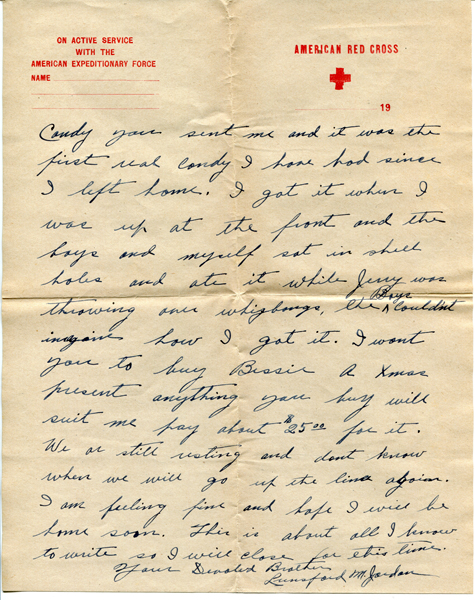 ON ACTIVE SERVICE
WITH THE
AMERICAN EXPEDITIONARY FORCE
NAME
AMERICAN RED CROSS
19
Candy you sent me and it was the
first real candy I have had since
I left home. I got it when I
was up at the front and the
boys and myself sat in shell
holes and ate it while Jerry was
throwing over whizbangs, the Boys couldn't
imagine how I got it. I want
you to buy Bessie a Xmas
present anything you buy will
suit me pay about $25.00 for it.
We ar still resting and dont know
when we will go up the line again.
I am feeling fine and hope I will be
home soon. This is about all I know
to write so I will close for this time.
Your Devoted Brother
Lunsford M. Jordan